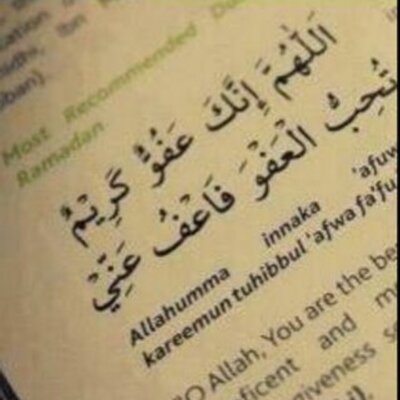 Most Recommended
Ramadan
اَللّٰهُمَّ إِنَّكَ عَفُوٌّ كَرِيْمٌ
تُحِبُّ الْعَفْوَ فَاعْفُ عَنِّيْ
Allahumma innaka 'afuw
kareemun tuhibbul 'afwa fa'fu
O Allah, You are the be
ficent and
giveness